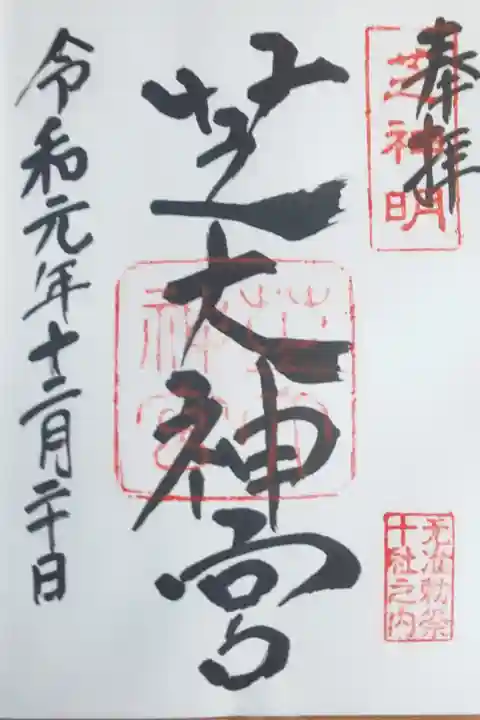 奉拝
芝神明
元准勅祭
十社之内
芝大神宮
令和元年十二月二十日